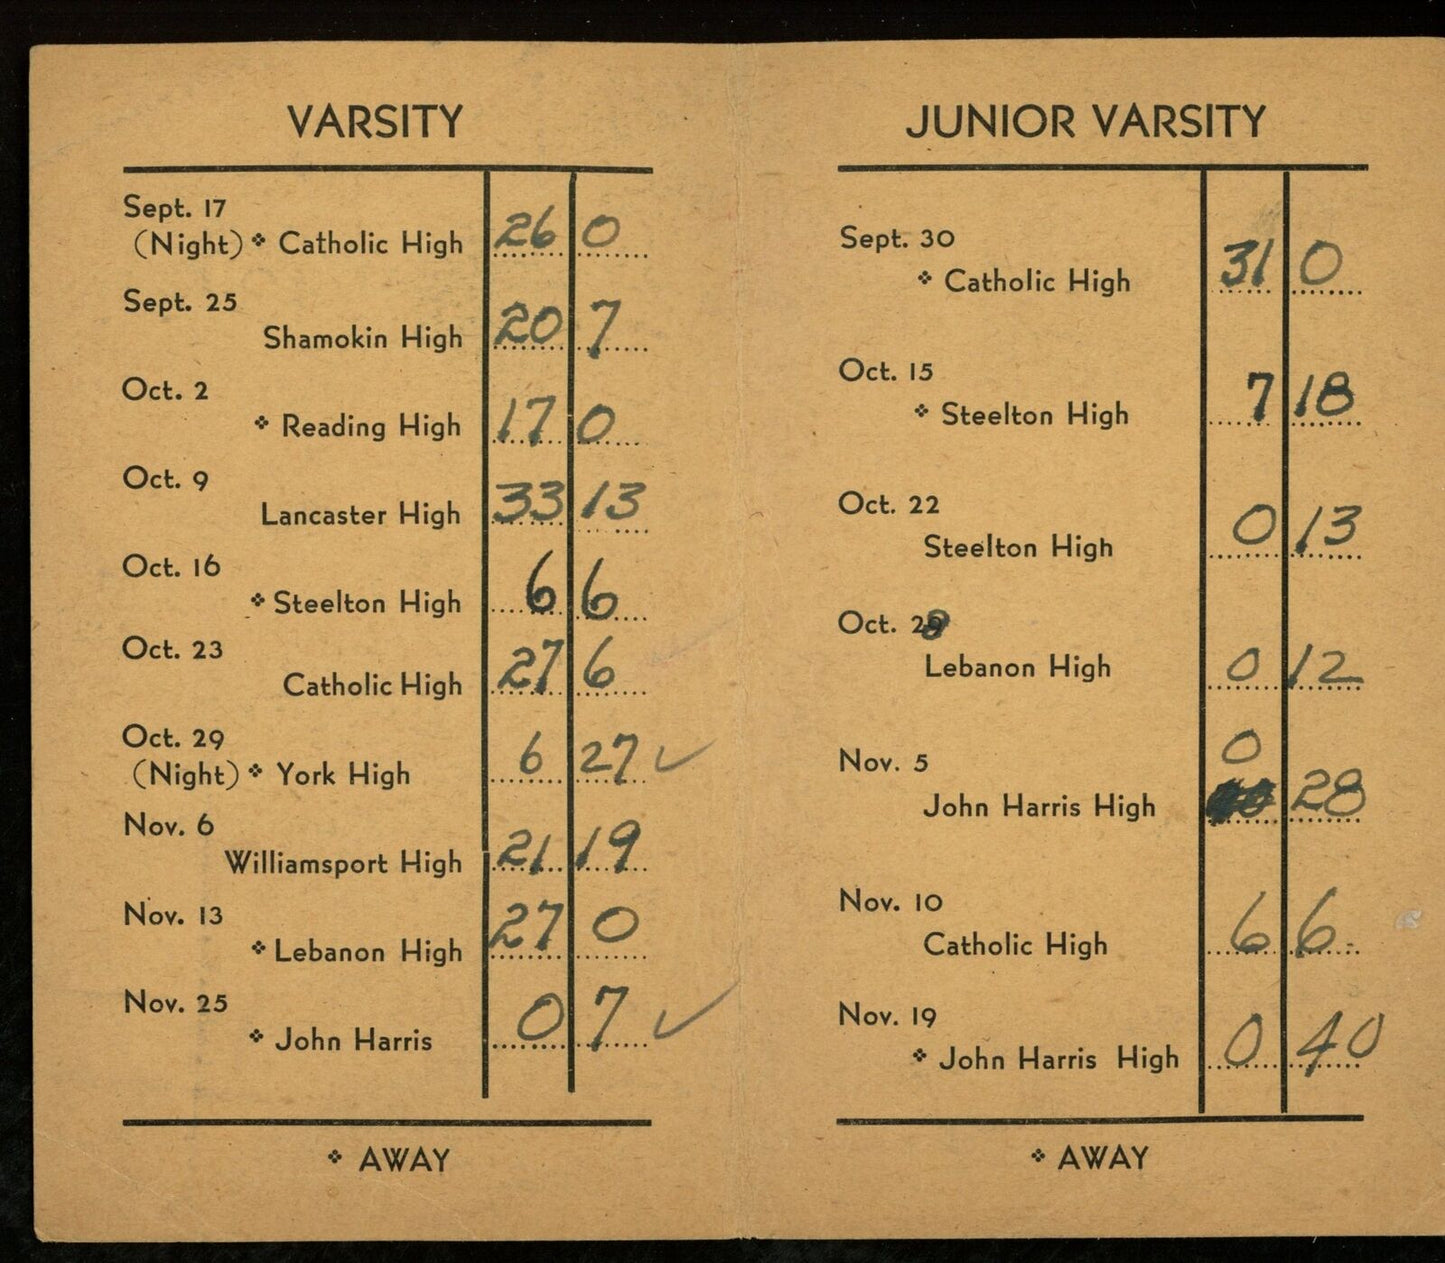 VARSITY
Sept. 17
(Night) ❖ Catholic High 26 0
Sept. 25
Shamokin High 20 7
Oct. 2
❖ Reading High 17 0
Oct. 9
Lancaster High 33 13
Oct. 16
❖ Steelton High 6 6
Oct. 23
Catholic High 27 6
Oct. 29
(Night) ❖ York High 6 27 ✓
Nov. 6
Williamsport High 21 19
Nov. 13
❖ Lebanon High 27 0
Nov. 25
❖ John Harris 0 7 ✓
❖ AWAY
JUNIOR VARSITY
Sept. 30
❖ Catholic High 31 0
Oct. 15
❖ Steelton High 7 18
Oct. 22
Steelton High 0 13
Oct.
Lebanon High 0 12
Nov. 5
John Harris High 0 28
Nov. 10
Catholic High 6 6
Nov. 19
❖ John Harris High 0 40
❖ AWAY